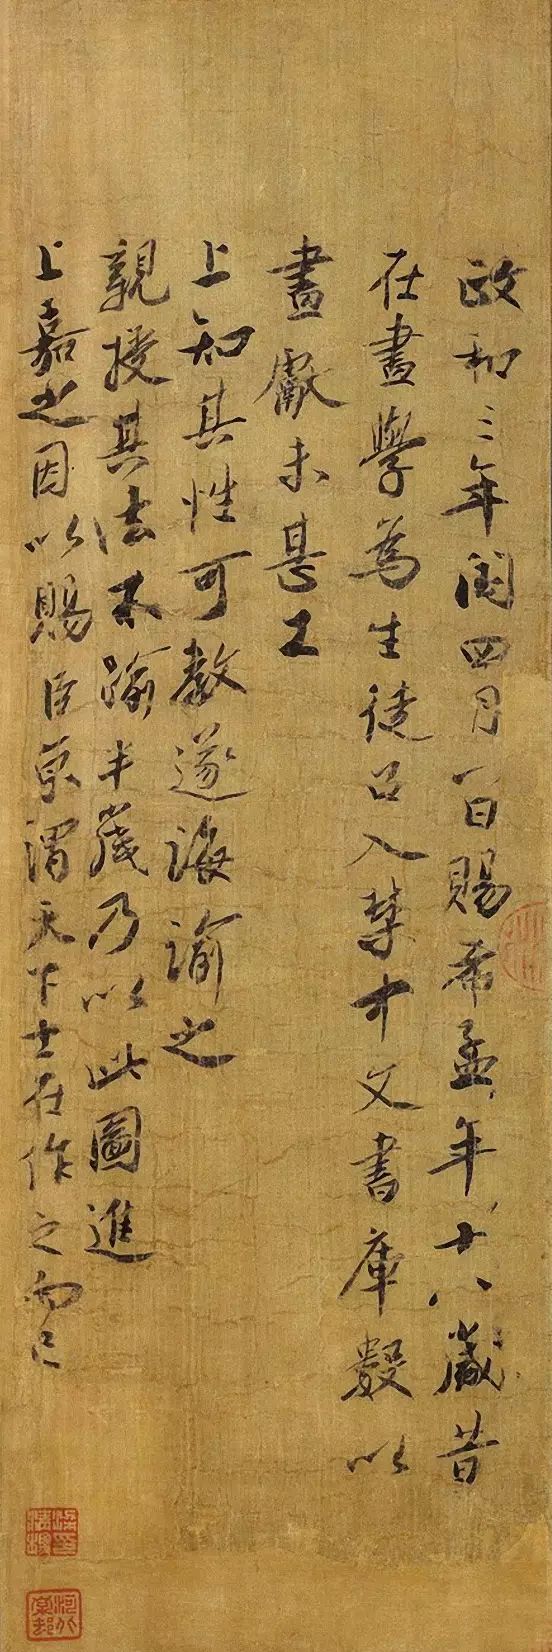 政和三年閏四月一日賜希孟年十八歲昔
在畫學爲生徒召入禁中文書庫數以
畫獻未甚工
上知其性可教遂誨諭之
親授其法不踰半歲乃以此圖進
上嘉之因以賜臣京謂天下士在作之而已